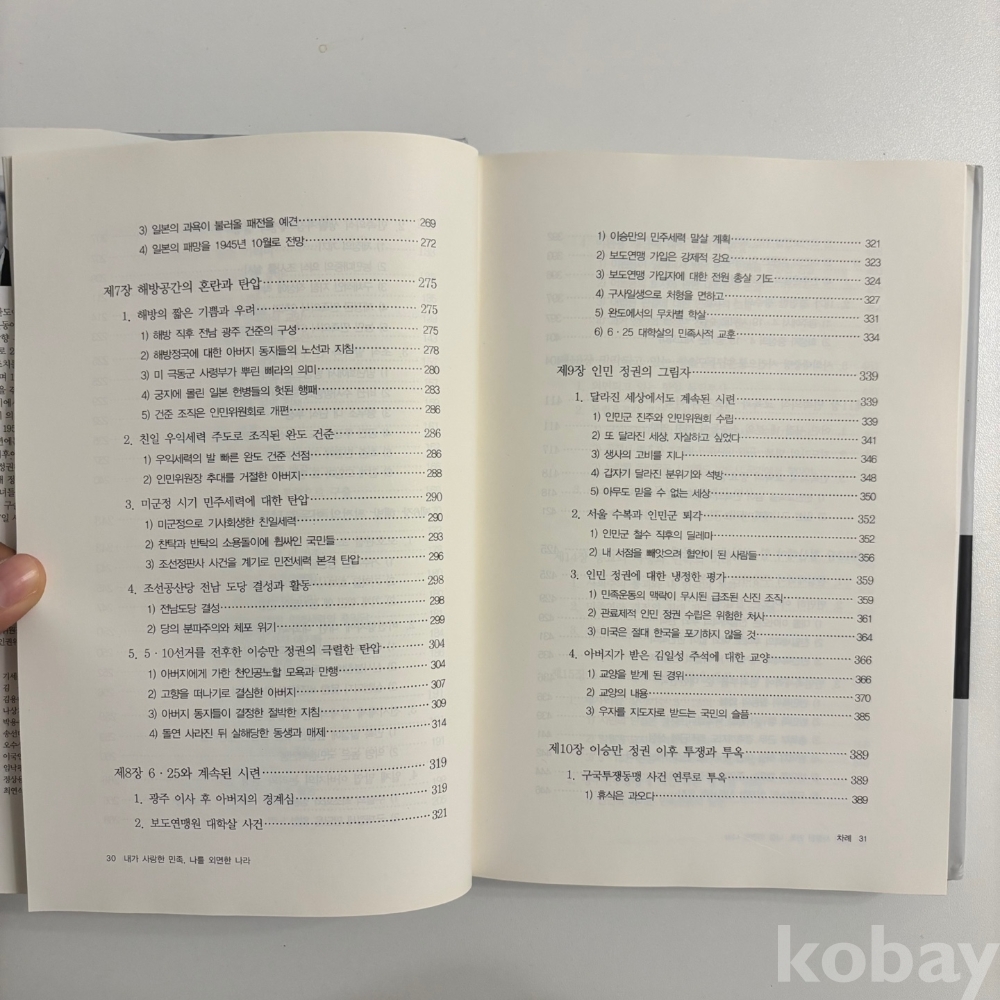 3) 일본의 과욕이 불러올 패전을 예견 269
4) 일본의 패망을 1945년 10월로 전망 272
제7장 해방공간의 혼란과 탄압 275
1. 해방의 짧은 기쁨과 우려 275
1) 해방 직후 전남 광주 건준의 구성 275
2) 해방정국에 대한 아버지 동지들의 노선과 지침 278
3) 미 극동군 사령부가 뿌린 삐라의 의미 280
4) 궁지에 몰린 일본 헌병들의 헛된 행패 283
5) 건준 조직은 인민위원회로 개편 286
2. 친일 우익세력 주도로 조직된 완도 건준 286
1) 우익세력의 발 빠른 완도 건준 선점 286
2) 인민위원장 추대를 거절한 아버지 288
3. 미군정 시기 민주세력에 대한 탄압 290
1) 미군정으로 기사회생한 친일세력 290
2) 찬탁과 반탁의 소용돌이에 휩싸인 국민들 293
3) 조선정판사 사건을 계기로 민전세력 본격 탄압 296
4. 조선공산당 전남 도당 결성과 활동 298
1) 전남도당 결성 298
2) 당의 분파주의와 체포 위기 299
5. 5·10선거를 전후한 이승만 정권의 극렬한 탄압 304
1) 아버지에게 가한 천인공노할 모욕과 만행 304
2) 고향을 떠나기로 결심한 아버지 307
3) 아버지 동지들이 결정한 절박한 지침 309
4) 돌연 사라진 뒤 살해당한 동생과 매제 314
제8장 6·25와 계속된 시련 319
1. 광주 이사 후 아버지의 경계심 319
2. 보도연맹원 대학살 사건 321
30 내가 사랑한 민족, 나를 외면한 나라
1) 이승만의 민주세력 말살 계획 321
2) 보도연맹 가입은 강제적 강요 323
3) 보도연맹 가입자에 대한 전원 총살 기도 324
4) 구사일생으로 처형을 면하고 327
5) 완도에서의 무차별 학살 331
6) 6·25 대학살의 민족사적 교훈 334
제9장 인민 정권의 그림자 339
1. 달라진 세상에서도 계속된 시련 339
1) 인민군 진주와 인민위원회 수립 339
2) 또 달라진 세상, 자살하고 싶었다 341
3) 생사의 고비를 지나 346
4) 갑자기 달라진 분위기와 석방 348
5) 아무도 믿을 수 없는 세상 350
2. 서울 수복과 인민군 퇴각 352
1) 인민군 철수 직후의 딜레마 352
2) 내 서점을 빼앗으려 혈안이 된 사람들 356
3. 인민 정권에 대한 냉정한 평가 359
1) 민족운동의 맥락이 무시된 급조된 신진 조직 359
2) 관료제적 인민 정권 수립은 위험한 처사 361
3) 미국은 절대 한국을 포기하지 않을 것 364
4. 아버지가 받은 김일성 주석에 대한 교양 366
1) 교양을 받게 된 경위 366
2) 교양의 내용 370
3) 우자를 지도자로 받드는 국민의 슬픔 385
제10장 이승만 정권 이후 투쟁과 투옥 389
1. 구국투쟁동맹 사건 연루로 투옥 389
1) 휴식은 과오다 389
차례 31
kobay